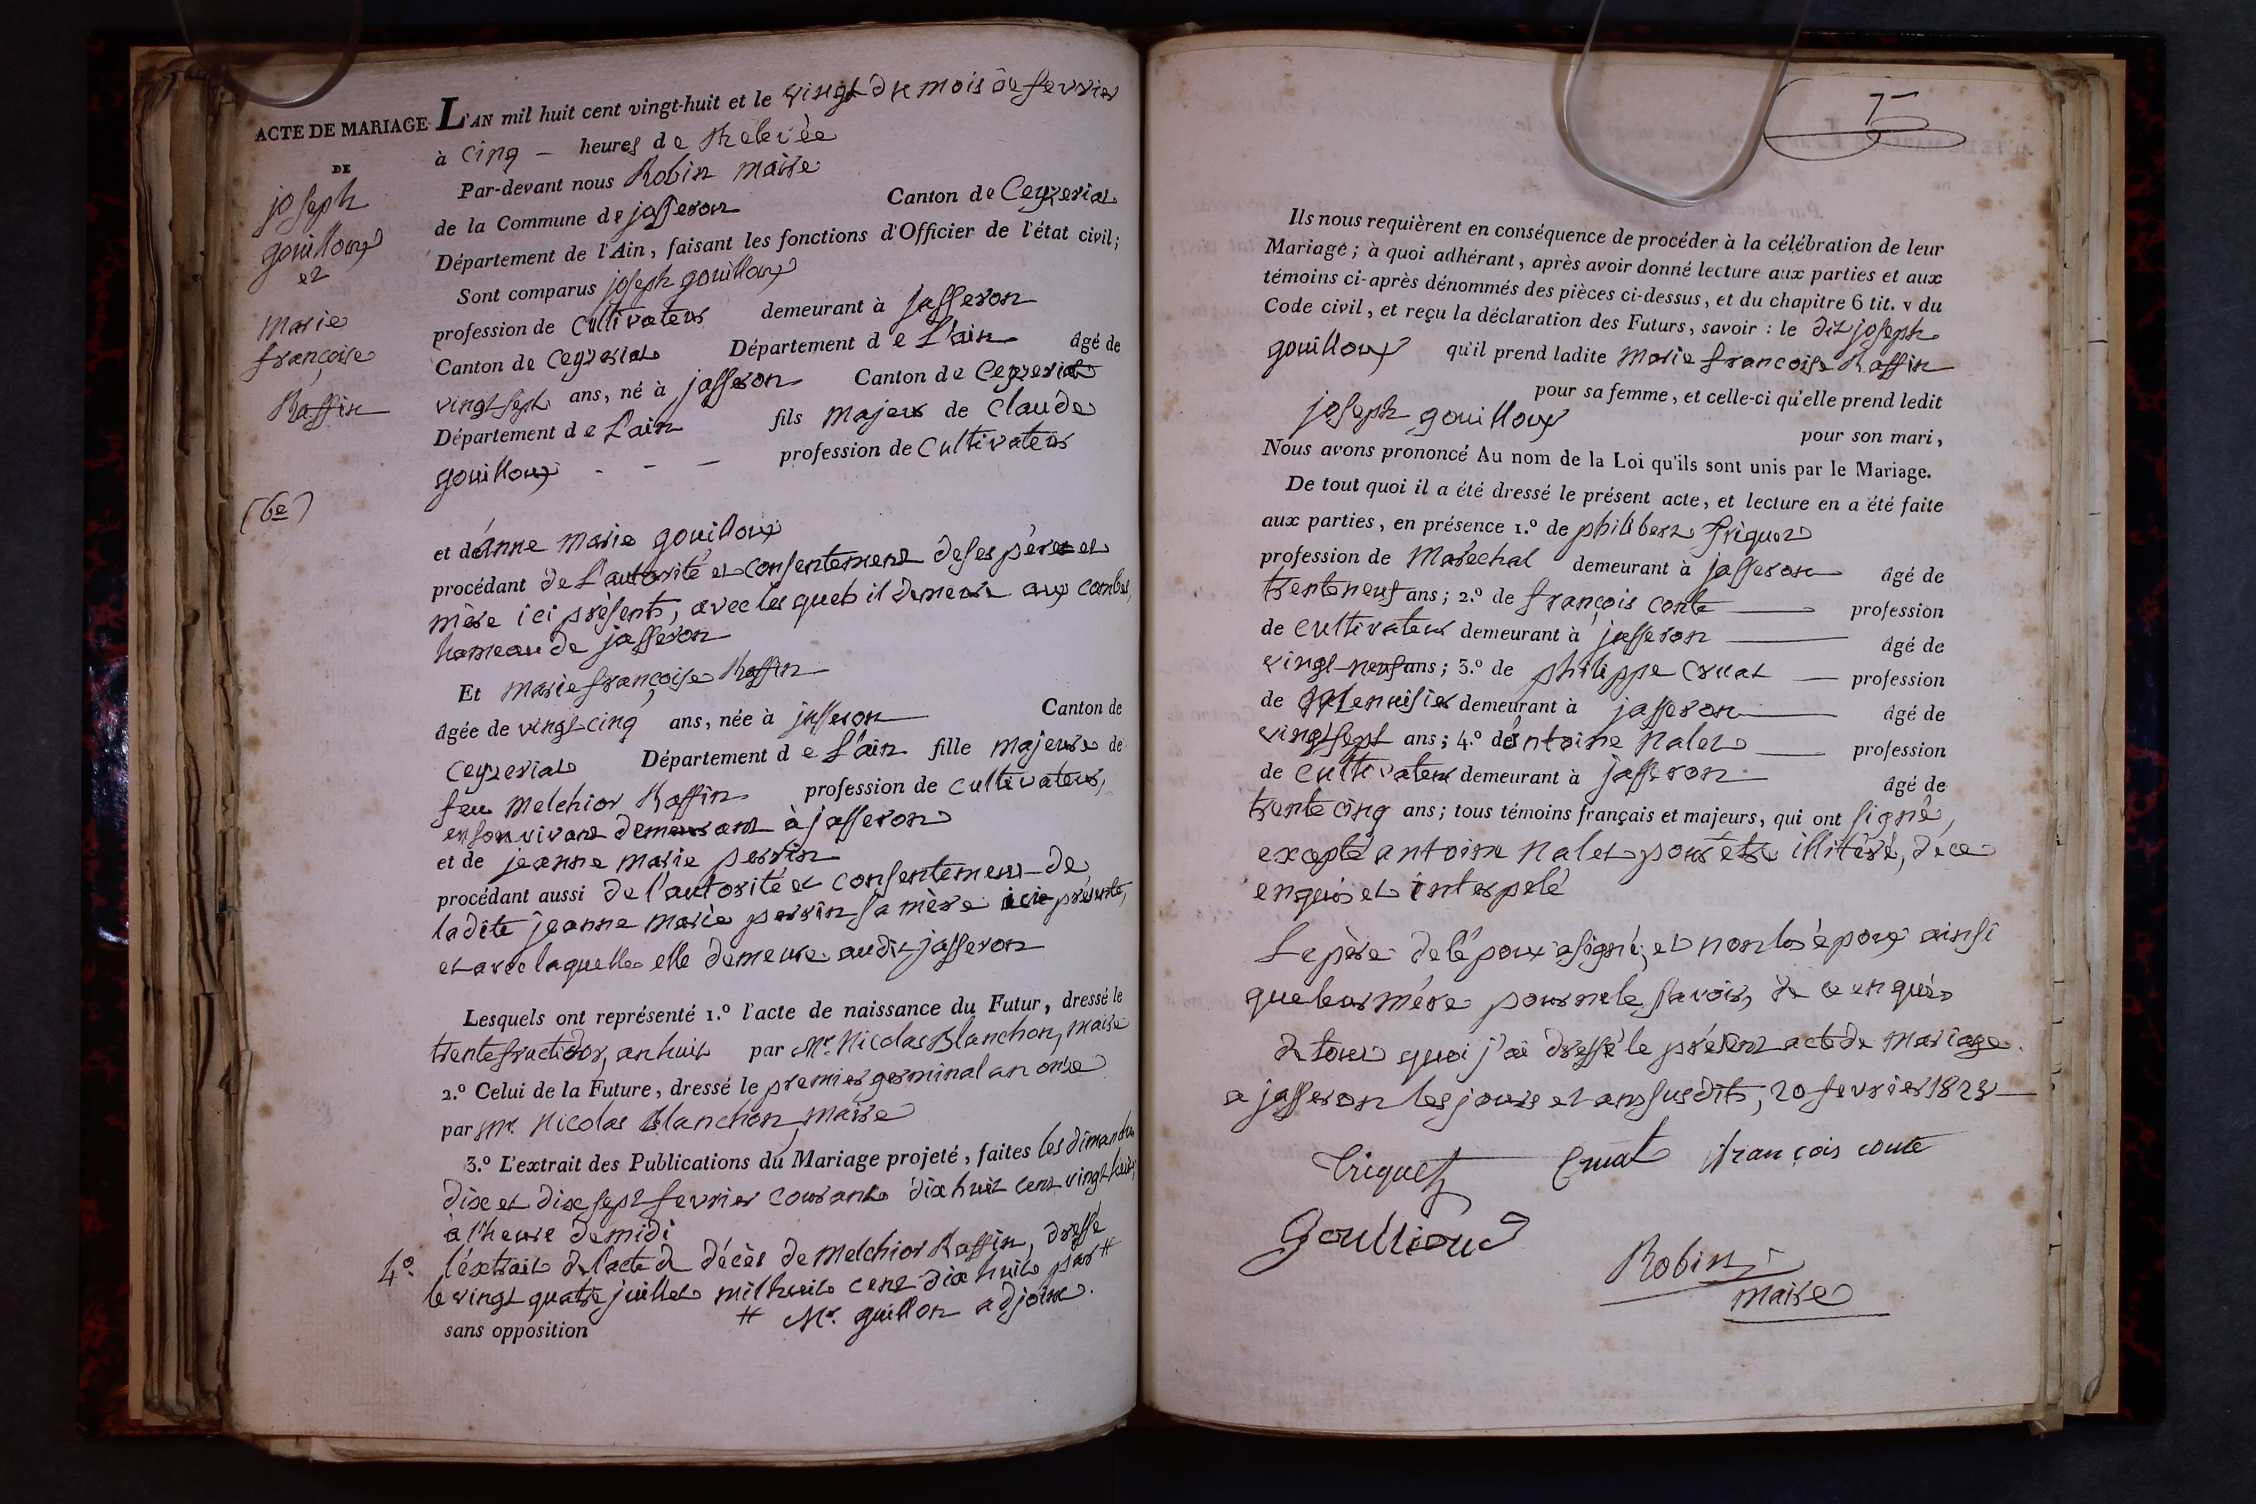 ACTE DE MARIAGE
DE
joseph
gouilloux
et
marie
françoise
Raffin
(6e)
L'AN mil huit cent vingt-huit et le vingt du mois de fevrier
à cinq – heures de Relevée
Par-devant nous Robin maire
de la Commune de jasseron Canton de Ceyzeriat
Département de l'Ain, faisant les fonctions d'Officier de l'état civil;
Sont comparus joseph gouilloux
profession de Cultivateur demeurant à jasseron
Canton de Ceyzeriat Département de L'ain âgé de
vingt sept ans, né à jasseron Canton de Ceyzeriat
Département de L'ain fils majeur de claude
gouilloux - - – profession de Cultivateur
et d'anne marie gouilloux
procédant de L'autorité et consentement de ses père et
mère ici présents, avec lesquels il demeure aux combes,
hameau de jasseron
Et marie françoise Raffin
âgée de vingt-cinq ans, née à jasseron Canton de
Ceyzeriat Département de L'ain fille majeure de
feu melchior Raffin profession de cultivateur,
en son vivant demeurant à jasseron
et de jeanne marie perrin
procédant aussi de l'autorité et consentement de
ladite jeanne marie perrin sa mère ici présente,
et avec laquelle elle demeure audit jasseron
Lesquels ont représenté 1.º l'acte de naissance du Futur, dressé le
trente fructidor, an huit par Mr. Nicolas Blanchon, maire
2.º Celui de la Future, dressé le premier germinal an onze
par Mr. Nicolas Blanchon, maire
3.º L'extrait des Publications du Mariage projeté, faites les dimanches
dix et dix sept fevrier courant dix huit cent vingt huit,
à l'heure de midi
4º. l'extrait de l'acte de décès de melchior Raffin, dressé
le vingt quatre juillet mil huit cent dix huit par #
# Mr. guillon adjoint.
sans opposition
75
Ils nous requièrent en conséquence de procéder à la célébration de leur
Mariage; à quoi adhérant, après avoir donné lecture aux parties et aux
témoins ci-après dénommés des pièces ci-dessus, et du chapitre 6 tit. v du
Code civil, et reçu la déclaration des Futurs, savoir: le dit joseph
gouilloux qu'il prend ladite marie francoise Raffin
pour sa femme, et celle-ci qu'elle prend ledit
joseph gouilloux pour son mari,
Nous avons prononcé Au nom de la Loi qu'ils sont unis par le Mariage.
De tout quoi il a été dressé le présent acte, et lecture en a été faite
aux parties, en présence 1.º de philibert friquet
profession de maréchal demeurant à jasseron âgé de
trente neuf ans; 2.º de françois conte profession
de cultivateur demeurant à jasseron âgé de
vingt-neuf ans; 3.º de philippe Cruat profession
de Menuisier demeurant à jasseron âgé de
vingt sept ans; 4.º d'antoine nalet profession
de cultivateur demeurant à jasseron âgé de
trente cinq ans; tous témoins français et majeurs, qui ont signé,
excepté antoine nalet pour être illitéré, de ce
enquis et interpelé
Le père de l'époux a signé, et non les époux ainsi
que leur mère pour ne le savoir, de ce enquis
de tout quoi j'ai dressé le présent acte de mariage.
a jasseron les jours et ans susdits, 20 fevrier 1828
Triquet Cruat françois conte
Goullioud
Robin
maire